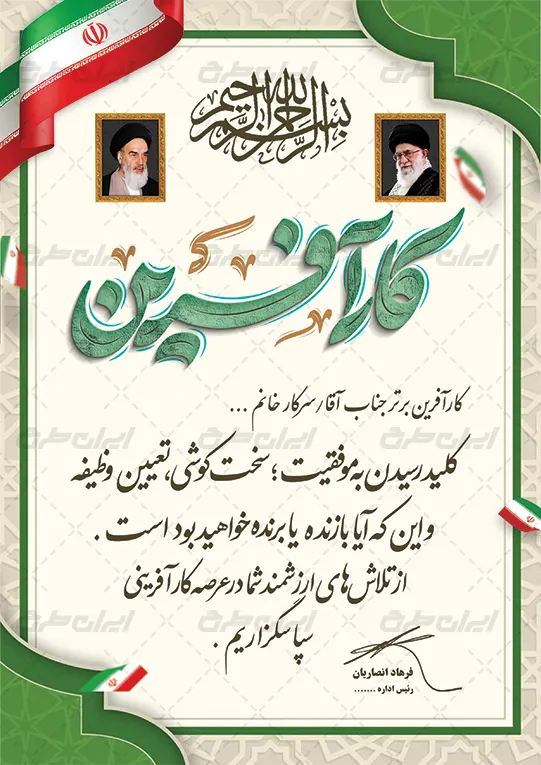 بسم الله الرحمن الرحیم
کارآفرین
کارآفرین برتر جناب آقا/سرکار خانم ...
کلید رسیدن به موفقیت؛ سخت کوشی، تعیین وظیفه
و این که آیا بازنده یا برنده خواهید بود است.
از تلاش های ارزشمند شما در عرصه کارآفرینی
سپاسگزاریم.
فرهاد انصاریان
رئیس اداره .......
ایران طرح